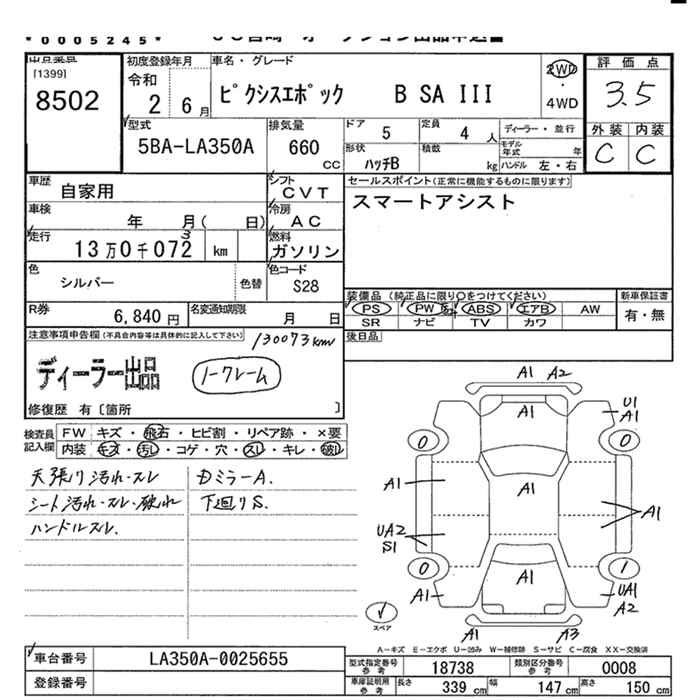 *0005245*
[1399]
8502
初度登録年月
令和
2 6月
車名・グレード
ピクシスエポック B SA III
2WD
・
4WD
評価点
3.5
外装 内装
C C
型式
5BA-LA350A
排気量
660
cc
ドア 5
定員 4人
ディーラー・並行
形状
ハッチB
積数
kg
モデル年式 年
ハンドル 左・右
車歴
自家用
シフト
CVT
セールスポイント(正常に機能するものに限ります)
スマートアシスト
車検
年 月( 日)
冷房
AC
走行
13万0千072km
3
燃料
ガソリン
色
シルバー
色替
色コード
S28
装備品 (純正品に限り○をつけてください)
PS PW ABS エアB AW
SR ナビ TV カワ
新車保証書
有・無
R券
6,840円
名変通知期限
月 日
後日品
注意事項申告欄(不具合内容等は具体的に記入して下さい)
130073km
ディーラー出品
ノークレーム
修復歴 有〔箇所 〕
検査員記入欄
FW キズ・飛石・ヒビ割・リペア跡・×要
内装 キズ・汚レ・コゲ・穴・スレ・キレ・破レ
天張り汚れ・スレ
シート汚れ・スレ・破れ
ハンドルスレ.
DミラーA.
下廻りS.
A1 A2
U1
A1
A1
0 0
A1
A1
A1
UA2
S1
0 1
A1
A1
UA1
A2
A1 A3
スペア
A-キズ E-エクボ U-凹み W-補修跡 S-サビ C-腐食 XX-交換済
車台番号
LA350A-0025655
登録番号
型式指定番号
参考
18738
類別区分番号
参考
0008
車庫証明用
参考
長さ 339cm
幅 147cm
高さ 150cm